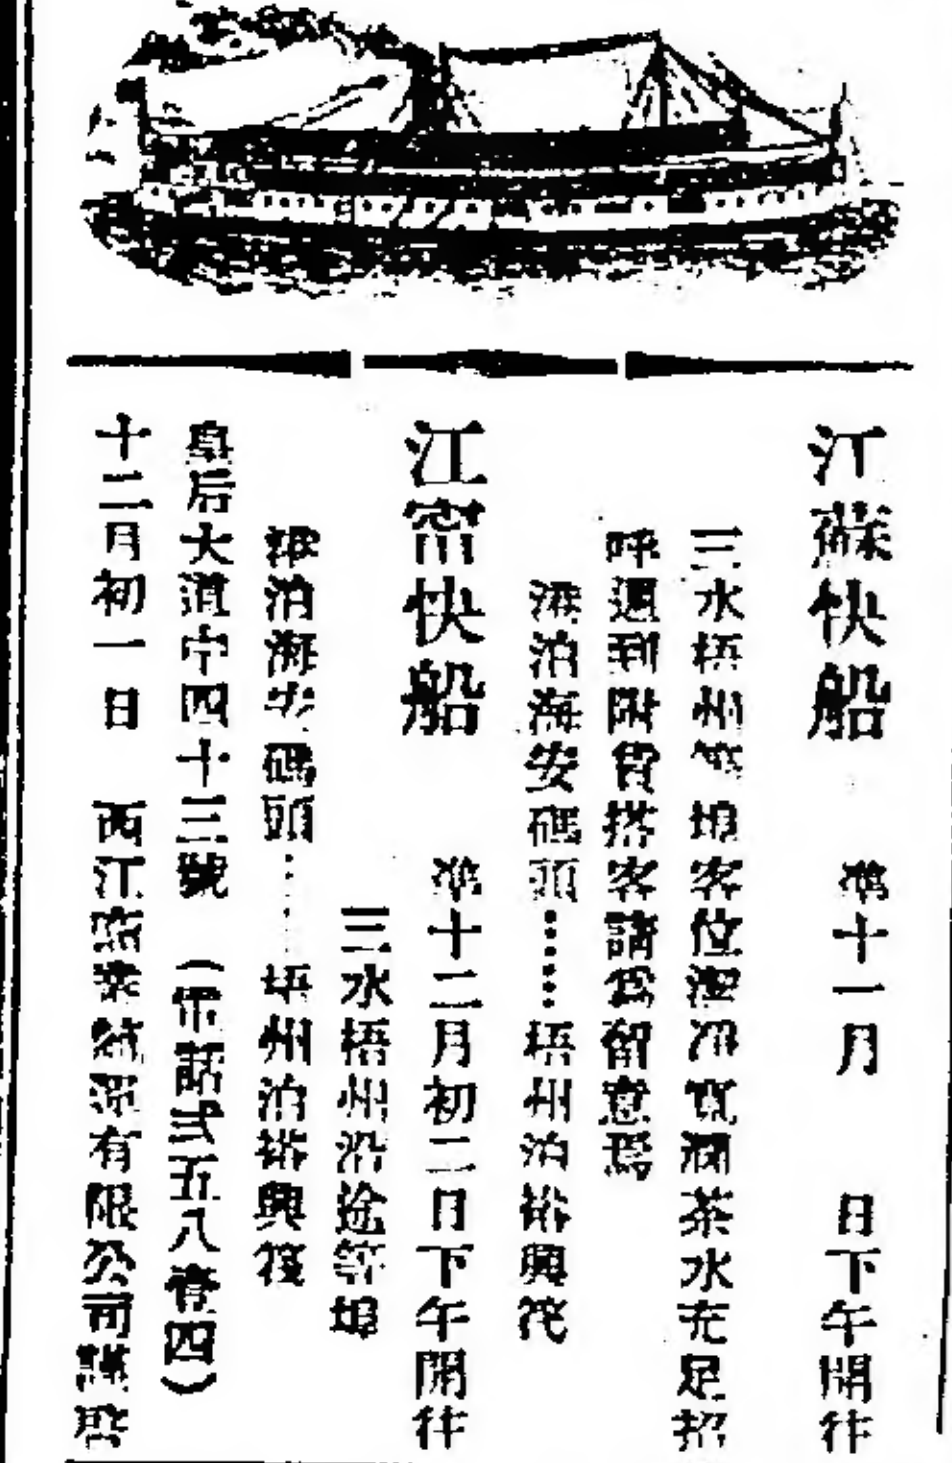 江蘇快船　準十一月　日下午開往
三水梧州等埠客位潔淨寬濶茶水充足招
呼週到附貨搭客請爲留意焉
港泊海安碼頭……梧州泊裕興筏
江甯快船　準十二月初二日下午開往
三水梧州沿途等埠
港泊海安碼頭……梧州泊裕興筏
皇后大道中四十三號　（電話弍五八壹四）
十二月初一日　西江有限公司謹啓